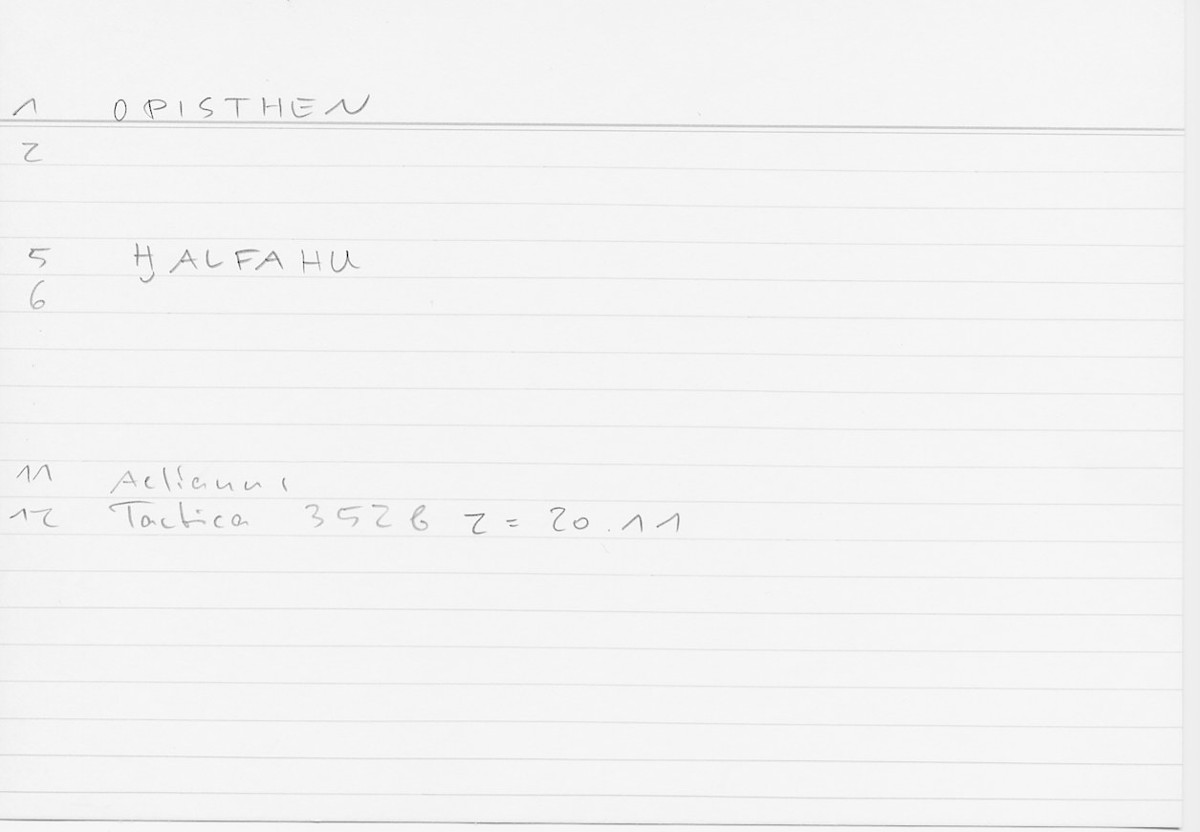 1 OPISTHEN
2
5 ḪALFAHU
6
11 Aelianus
12 Tactica 352 6 2 = 20.11